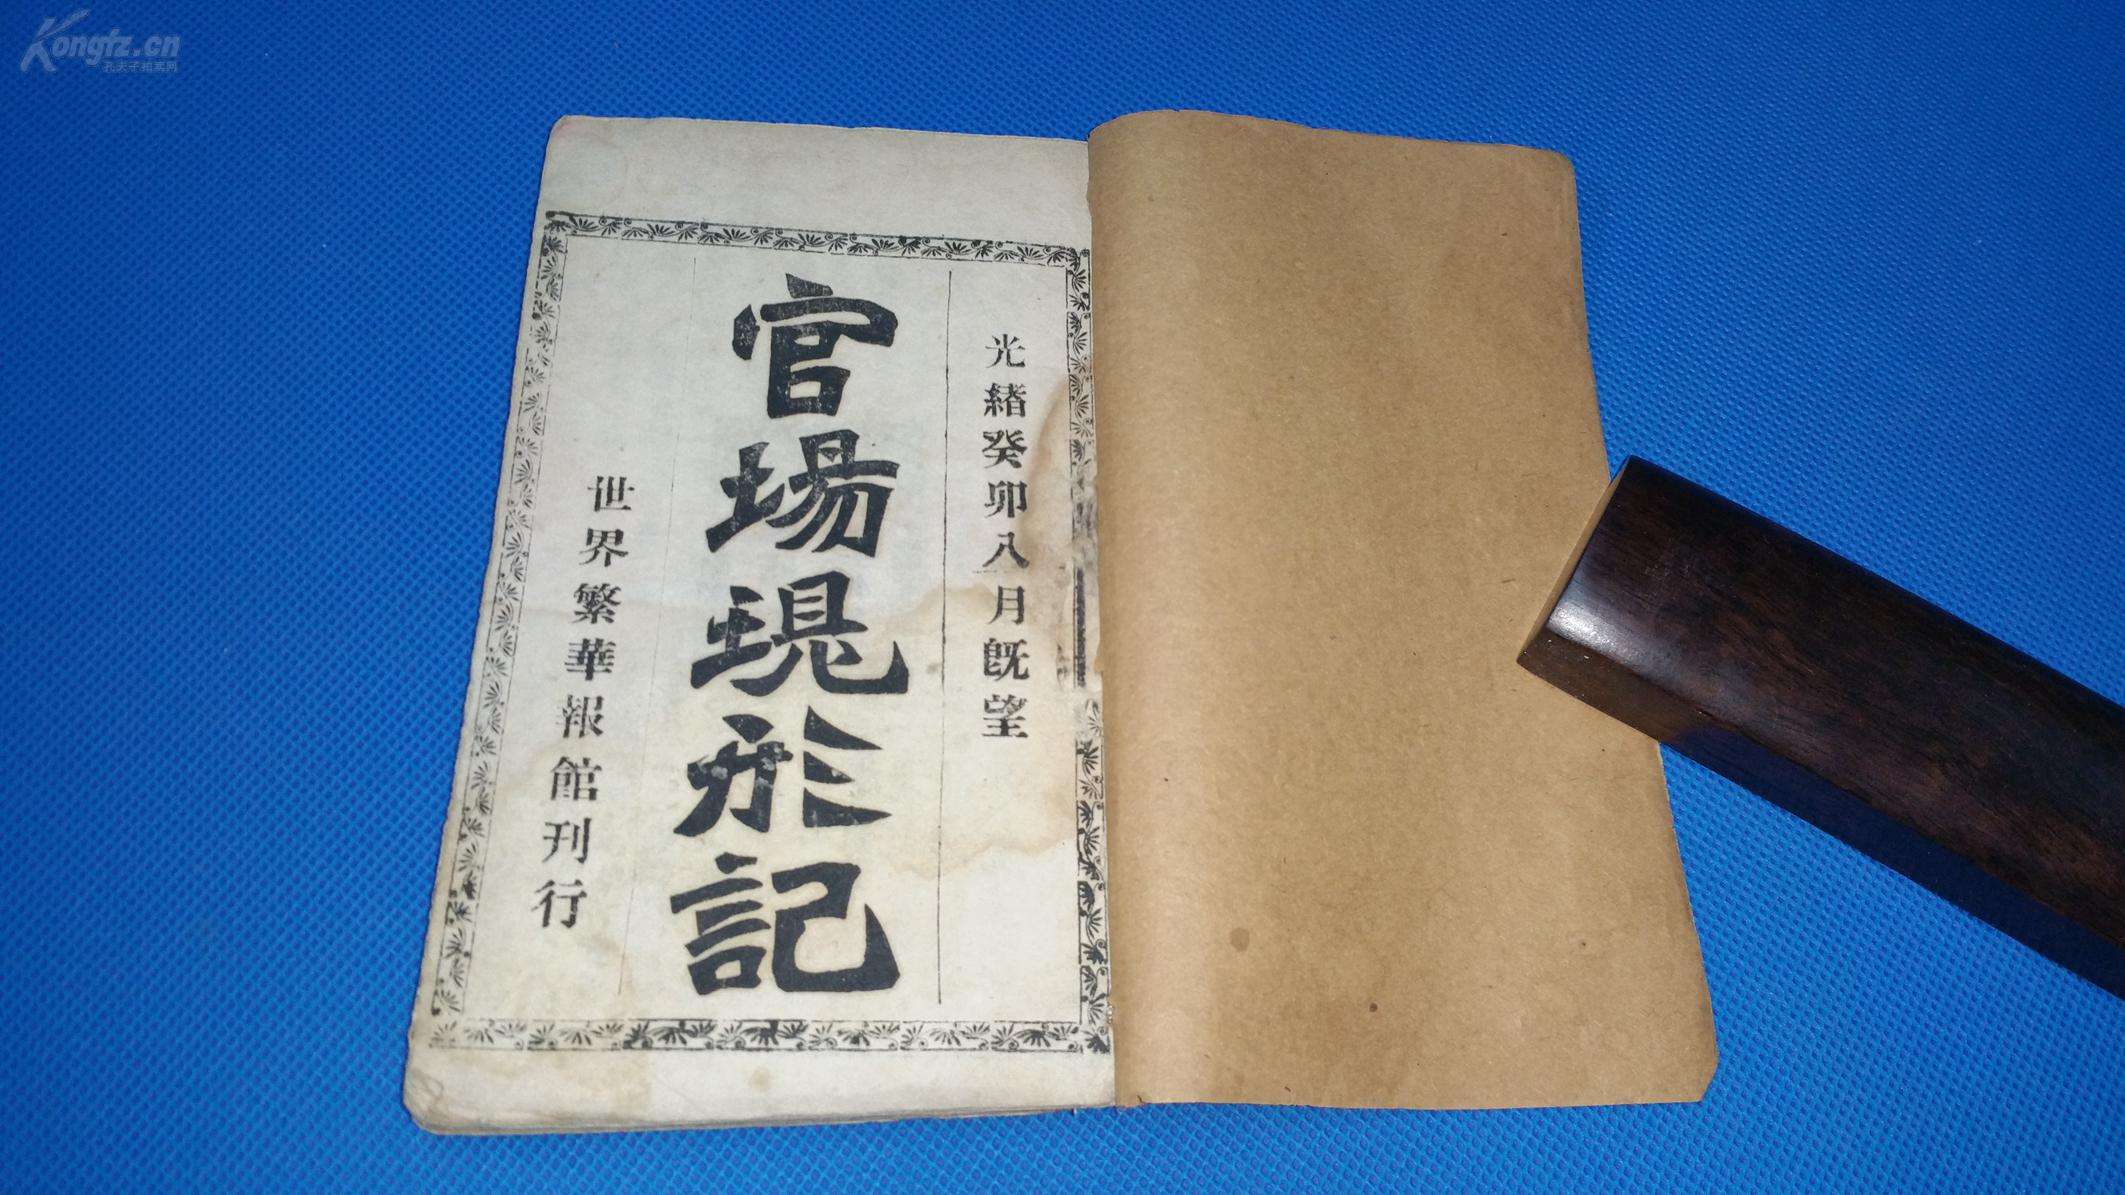 Kongfz.cn
孔夫子拍卖网
光緒癸卯八月既望
官場現形記
世界繁華報館刊行